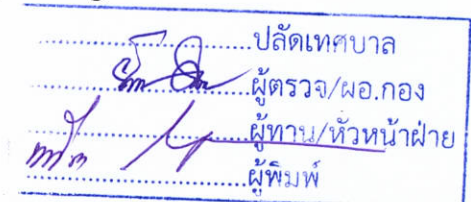 ....................ปลัดเทศบาล
....................ผู้ตรวจ/ผอ.กอง
....................ผู้ทาน/หัวหน้าฝ่าย
....................ผู้พิมพ์